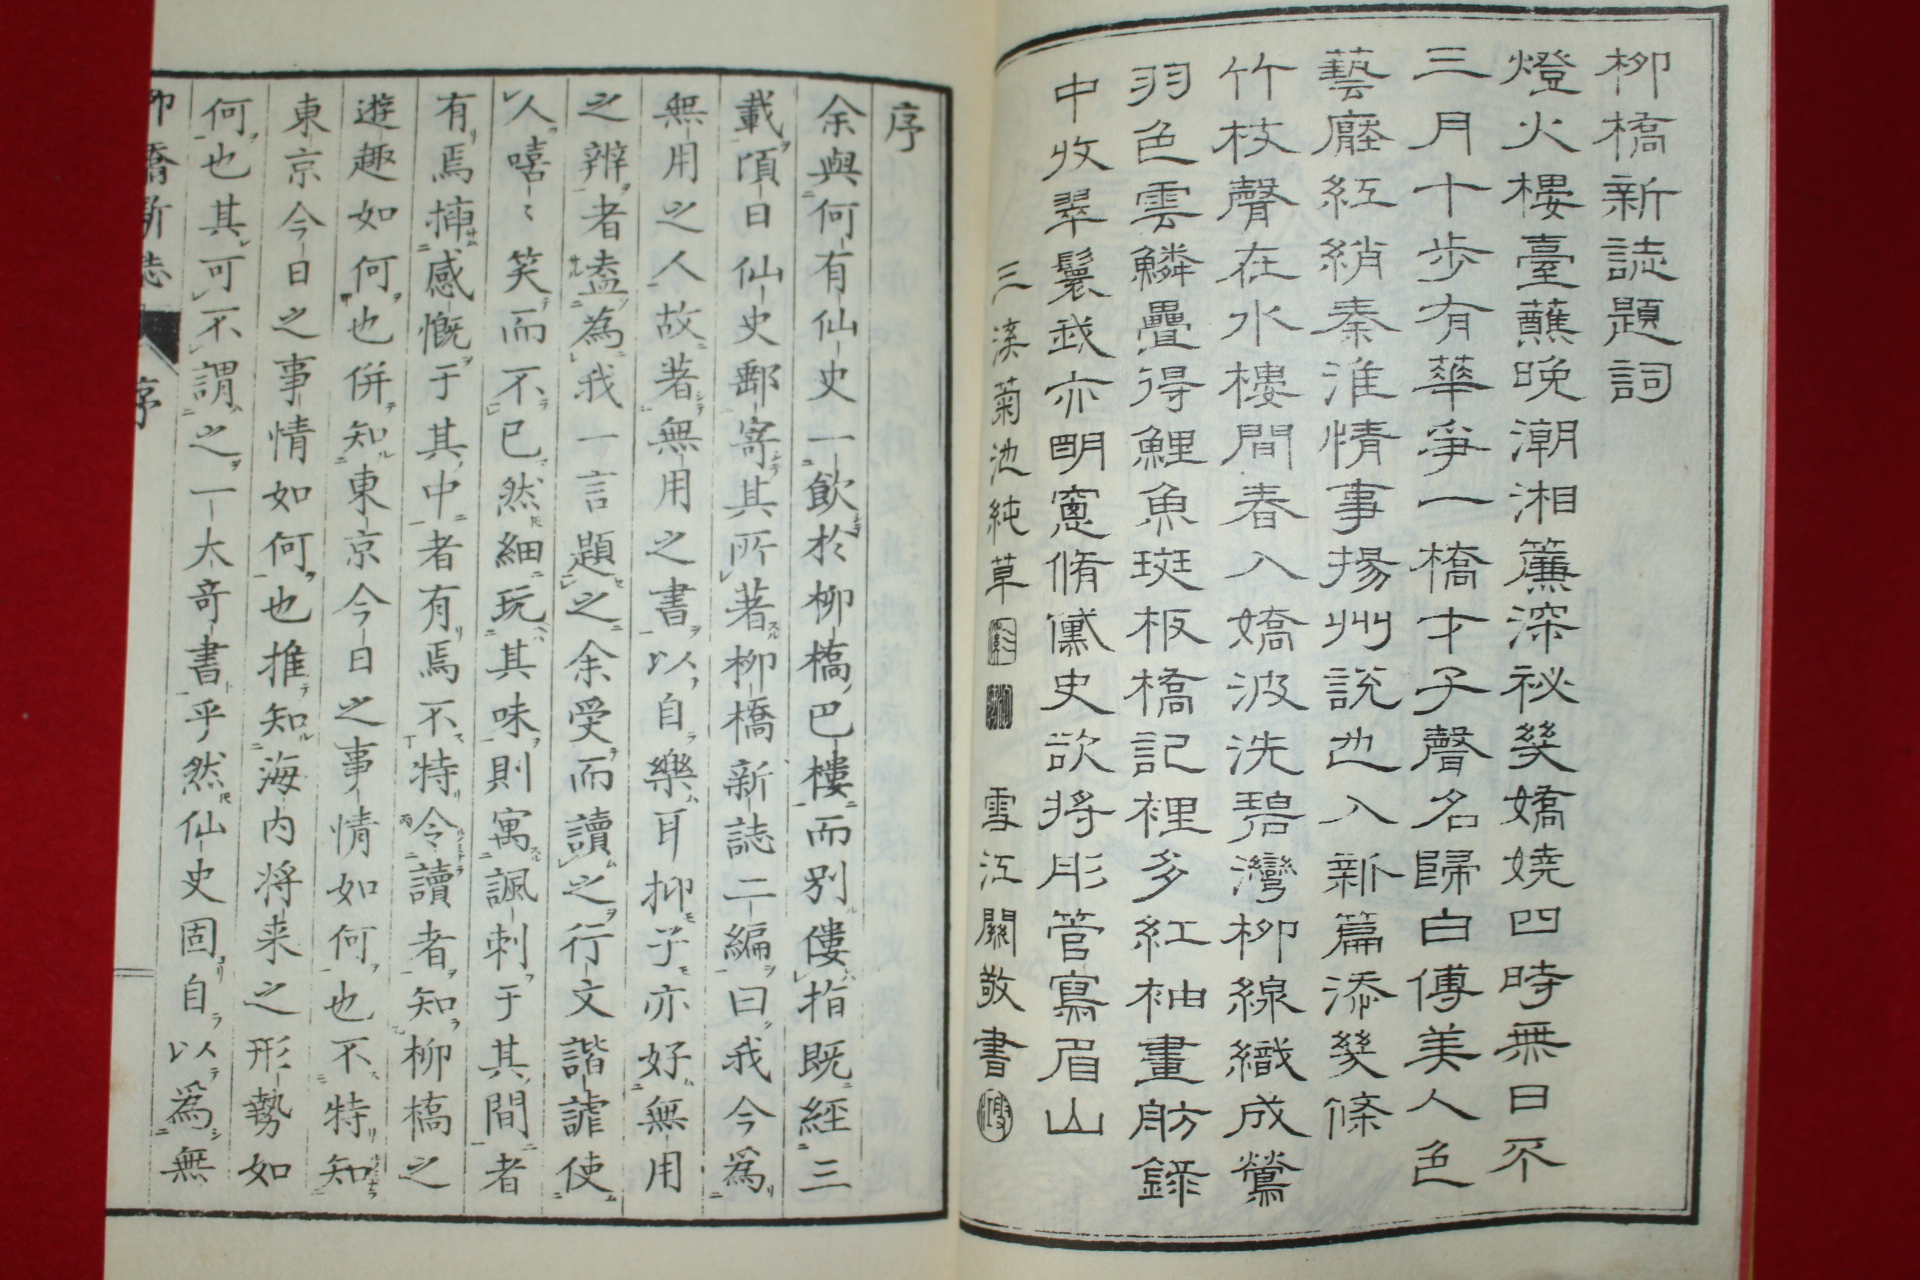 柳橋新誌題詞
燈火樓臺蘸晚潮湘簾深祕幾嬌嬈四時無日不
三月十步有華爭一橋才子聲名歸白傅美人色
藝壓紅綃秦淮情事揚州說也入新篇添幾條
竹枝聲在水樓間春入嬌波洗碧灣柳線織成鶯
羽色雲鱗疊得鯉魚斑板橋記裡多紅袖畫舫錄
中收翠鬟我亦明窻脩儻史欲將彤管寫眉山
三溪菊池純草 雪江關敬書
序
余與何有仙史一飲於柳橋巴樓而別僂指既經三
載頃日仙史郵寄其所著柳橋新誌二編曰我今為
無用之人故著無用之書以自樂耳抑子亦好無用
之辨者盍為我一言題之余受而讀之行文諧謔使
人嘻〻笑而不已然細玩其味則寓諷刺于其間者
有焉揷感慨于其中者有焉不特令讀者知柳橋之
遊趣如何也併知東京今日之事情如何也不特知
東京今日之事情如何也推知海内将来之形勢如
何也其可不謂之一大奇書乎然仙史固自以為無
柳橋新誌 序